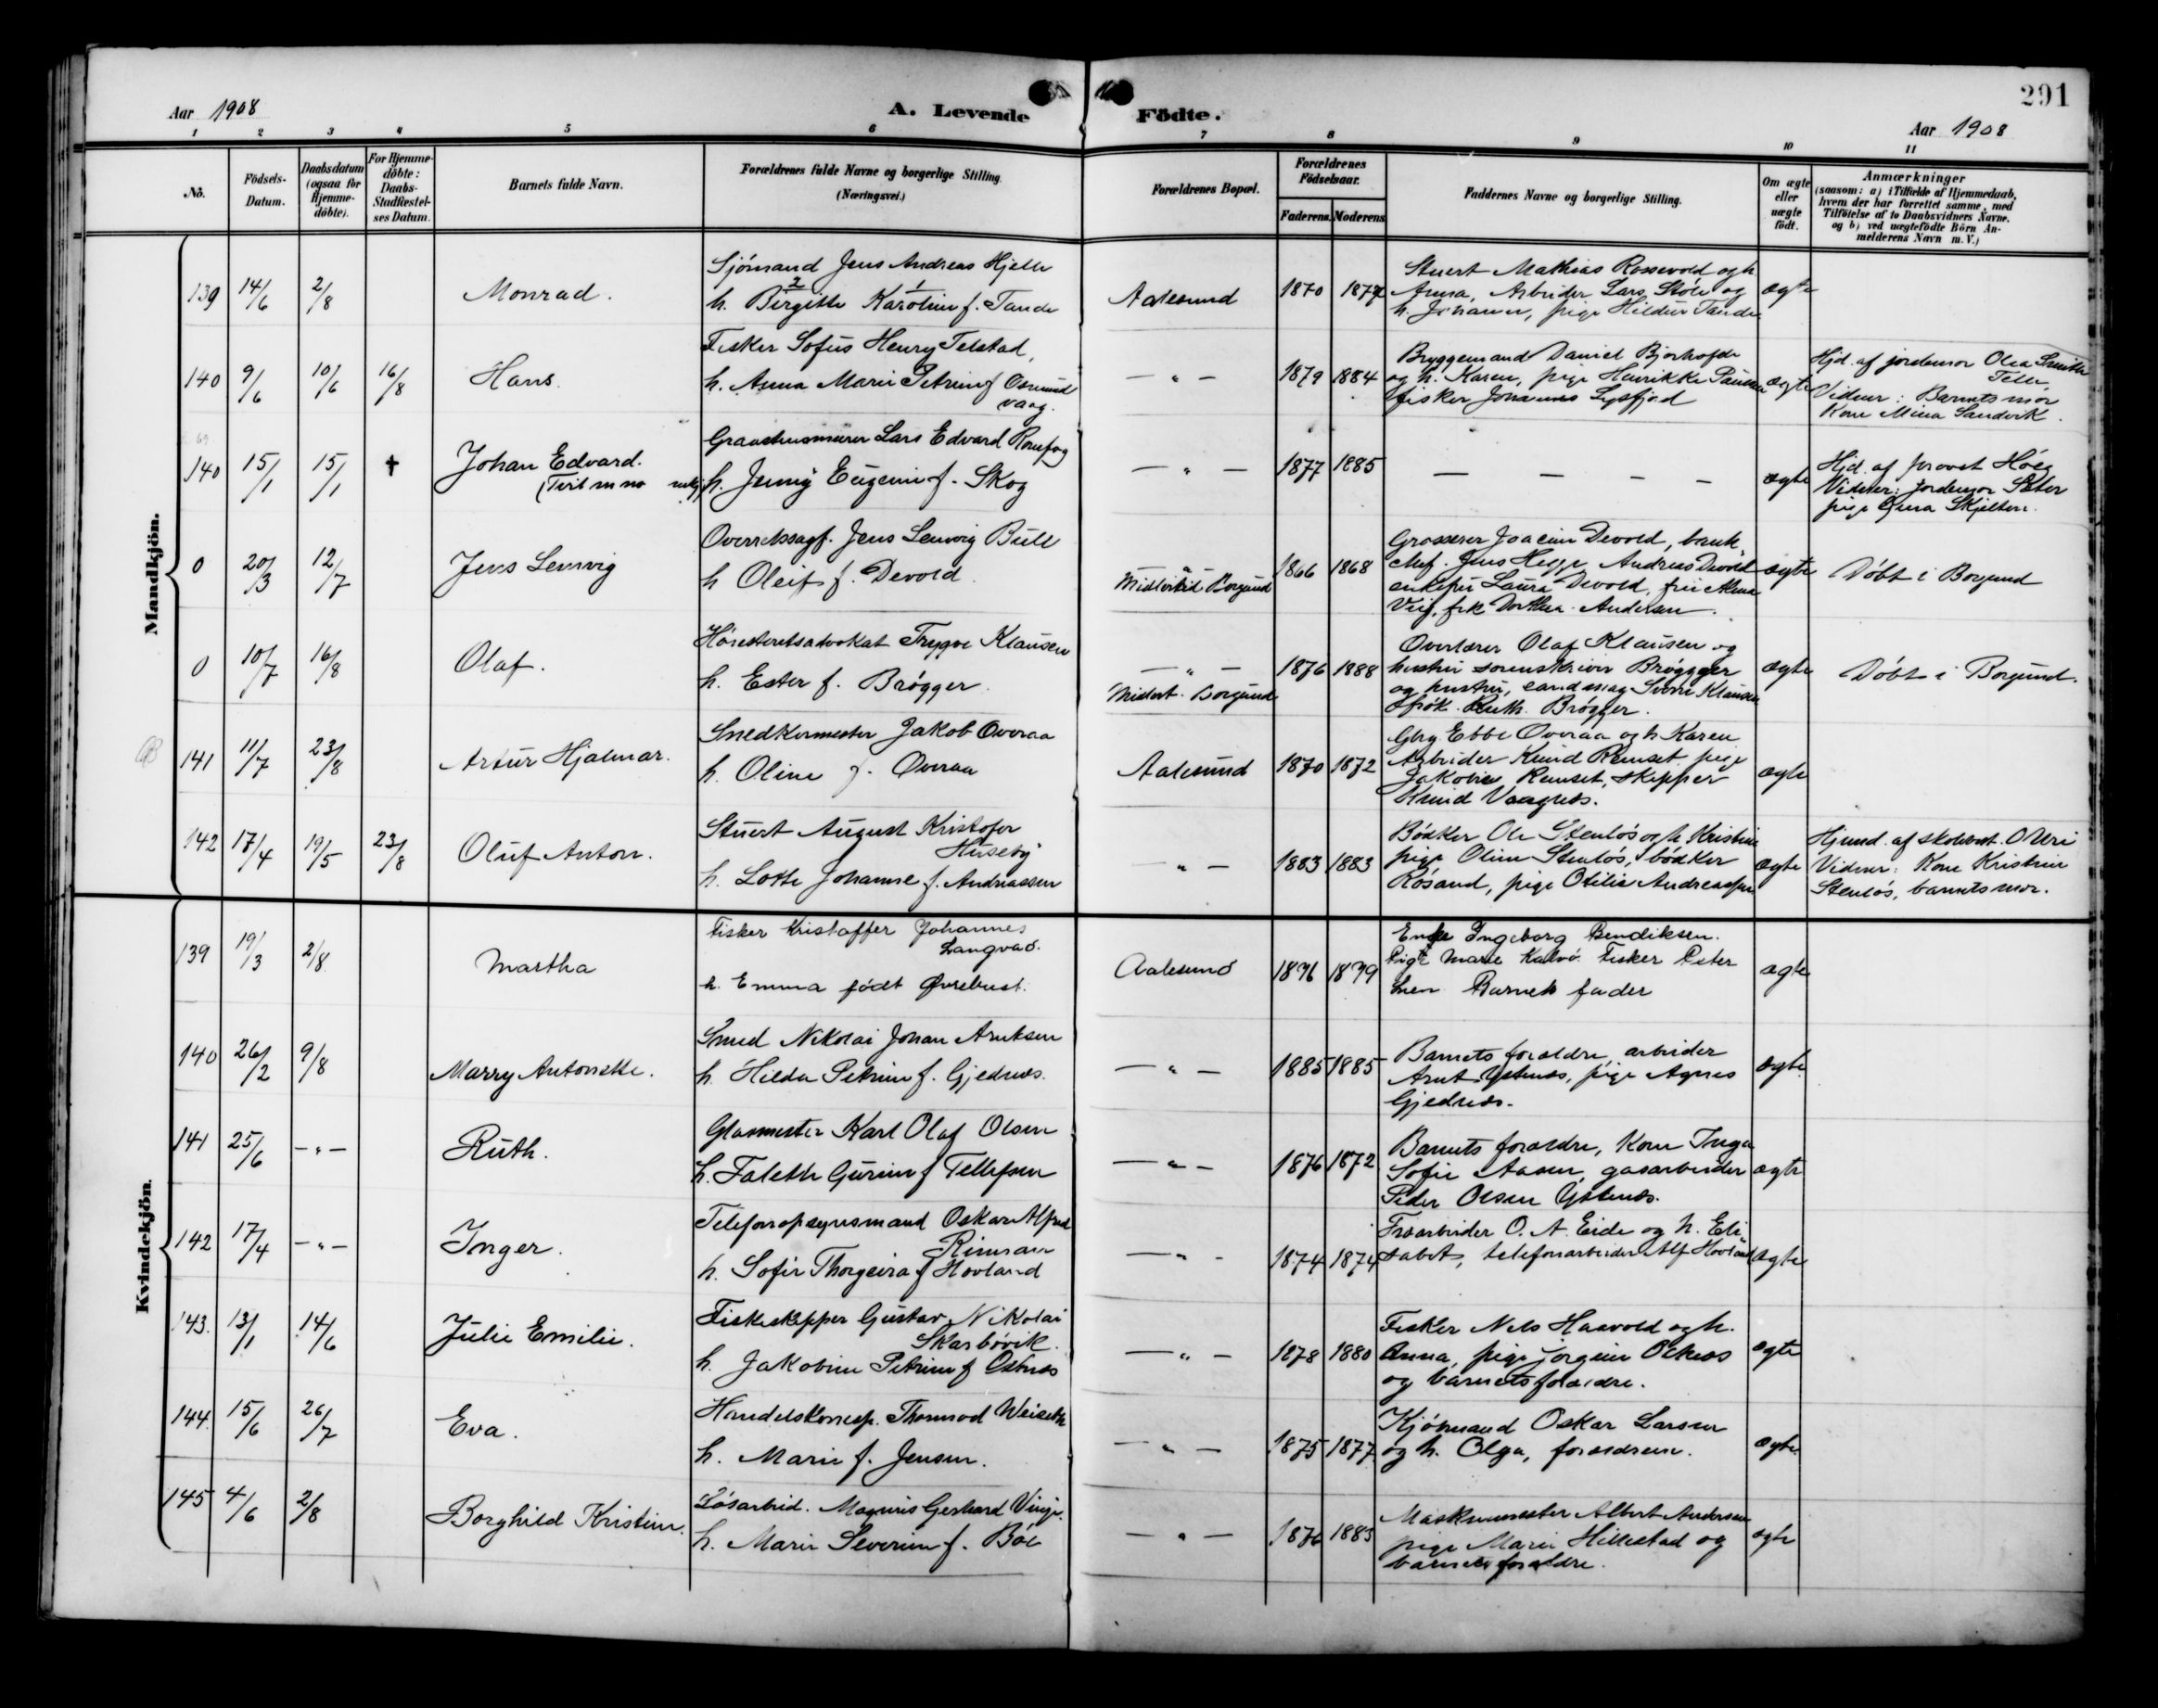 291
Aar 1908
A. Levende Födte.
Aar 1908
1 2 3 4 5 6 7 8 9 10 11
No.
Födsels-Datum.
Daabsdatum (ogsaa for Hjemme-döbte).
For Hjemme-döbte: Daabs-Stadfæstel-ses Datum.
Barnets fulde Navn.
Forældrenes fulde Navne og borgerlige Stilling.
(Næringsvei.)
Forældrenes Bopæl.
Forældrenes Födselsaar.
Faderens. Moderens.
Faddernes Navne og borgerlige Stilling.
Om ægte eller uægte födt.
Anmærkninger
(saasom: a) i Tilfælde af Hjemmedaab,
hvem der har forrettet samme, med
Tilföielse af to Daabsvidners Navne,
og b) ved uægtefödte Börn An-
melderens Navn m. V.)
Mandkjön.
139 14/6 2/8 Monrad.
Sjömand Jens Andreas Hjelle
h. Birgitte Karoline f. Tande
Aalesund 1870 1877
Stuert Mathias Rossevold og h.
Anna, Arbeider Lars Stöle og
h. Johanne, pige Hildur Tande
ægte
140 9/6 10/6 16/8 Hans
Fisker Sofus Henry Telstad,
h. Anna Marie Petrine f Osmund
vaag.
— " — 1879 1884
Bryggemand Daniel Bjørhofde
og h. Karen, pige Henrikke Paulsen
fisker Johannes Lysfjord
ægte
Hjd. af jordemor Olea Smith
Telle
Vidner: Barnets mor
Kone Mina Sandvik.
140 15/1 15/1 † Johan Edvard.
(Tvil m no
Lars Edvard
h. Jenny Eugenie f. Skog
— " — 1877 1885
— — — —
ægte
Hjd. af provst Höeg
Vidner: Jordemor Sæter
pige Gina Skjelten.
0 20/3 12/7 Jens Lemvig
Overretssagf. Jens Lemvig Bull
h Oleif f. Devold
— " —
Midlertid Borgund
1866 1868
Grosserer Joacim Devold, bank
chef. Jens Hegge, Andreas Devold
enkefru Laura Devold, fru Alma
Veig, frk Dorthea Andersen.
ægte
Döbt i Borgund
0 10/7 16/8 Olaf.
Höiesteretsadvokat Trygve Klausen
h. Ester f. Brögger.
— " —
Midlert. Borgund
1876 1888
Overlærer Olaf Klausen og
hustru sorenskriver Brögger
og hustru, cand mag Sverre Klausen
frök. Ruth Brögger.
ægte
Döbt i Borgund.
141 11/7 23/8 Artur Hjalmar.
Snedkermester Jakob Overaa
h. Oline f. Overaa
Aalesund 1870 1872
Gbrg. Ebbe Overaa og h. Karen
Arbeider Knud Remset, pige
Jakobine Remset, skipper
Knud Vaagnes.
ægte
142 17/4 19/5 23/8 Oluf Anton.
Stuert August Kristofer
Huseby
h. Lotte Johanne f. Andreassen
" — 1883 1883
Bödker Ole Stenlös og h. Kristine
pige Oline Stenlös, bödker
Rösand, pige Otilie Andreassen
ægte
Hjemd. af skolebest. O Uri
Vidner: Kone Kristine
Stenlös, barnets mor.
Kvindekjön.
139 19/3 2/8 Martha
Fisker Kristoffer Johannes
Langvad.
h. Emma födt Øvrebust.
Aalesund 1876 1879
Enke Ingeborg Bendiksen.
Pige Marie Kalvö. Fisker Peter
Barnets fader
ægte
140 26/2 9/8 Marry Antonette.
Smed Nikolai Johan Arntsen
h. Hilda Petrine f. Gjednes.
— " — 1885 1885
Barnets forældre, arbeider
Arnt Ystenes, pige Agnes
Gjednes.
ægte.
141 25/6 — " — Ruth.
Glasmester Karl Olaf Olsen
h. Faleth Gurine f Tellefsen
— " — 1876 1872
Barnets forældre, Kone Inga
Sofie Aasen, gasarbeider
Peder Olsen Ystenes.
ægte
142 17/4 — " — Inger.
Telefonopsynsmand Oskar Alfred
Rimson
h. Sofie Thorgeira f Hovland
— " - 1874 1874
O. A. Eide og h. Eli
sabet, telefonarbeider Alf Hovland
ægte
143. 13/1 14/6 Julie Emilie.
Fiskeskipper Gustav Nikolai
Skarbövik.
h. Jakobine Petrine f Osnes
— " — 1878 1880
Fisker Nels Haavold og h.
Anna, pige Jorgine
og barnets forældre.
ægte
144 15/6 26/7 Eva.
Handelskorresp. Thormod Weiseth
h. Marie f. Jensen.
— " — 1875 1877
Kjöbmand Oskar Larsen
og h. Olga, forældrene.
ægte
145 4/6 2/8 Borghild Kristine.
Lösarbeid. Magnus Gerhard Vinje.
h. Marie Severine f. Böe
— " — 1876 1883
Maskinmester Albert Andersen
pige Marie Hillestad og
barnets forældre.
ægte